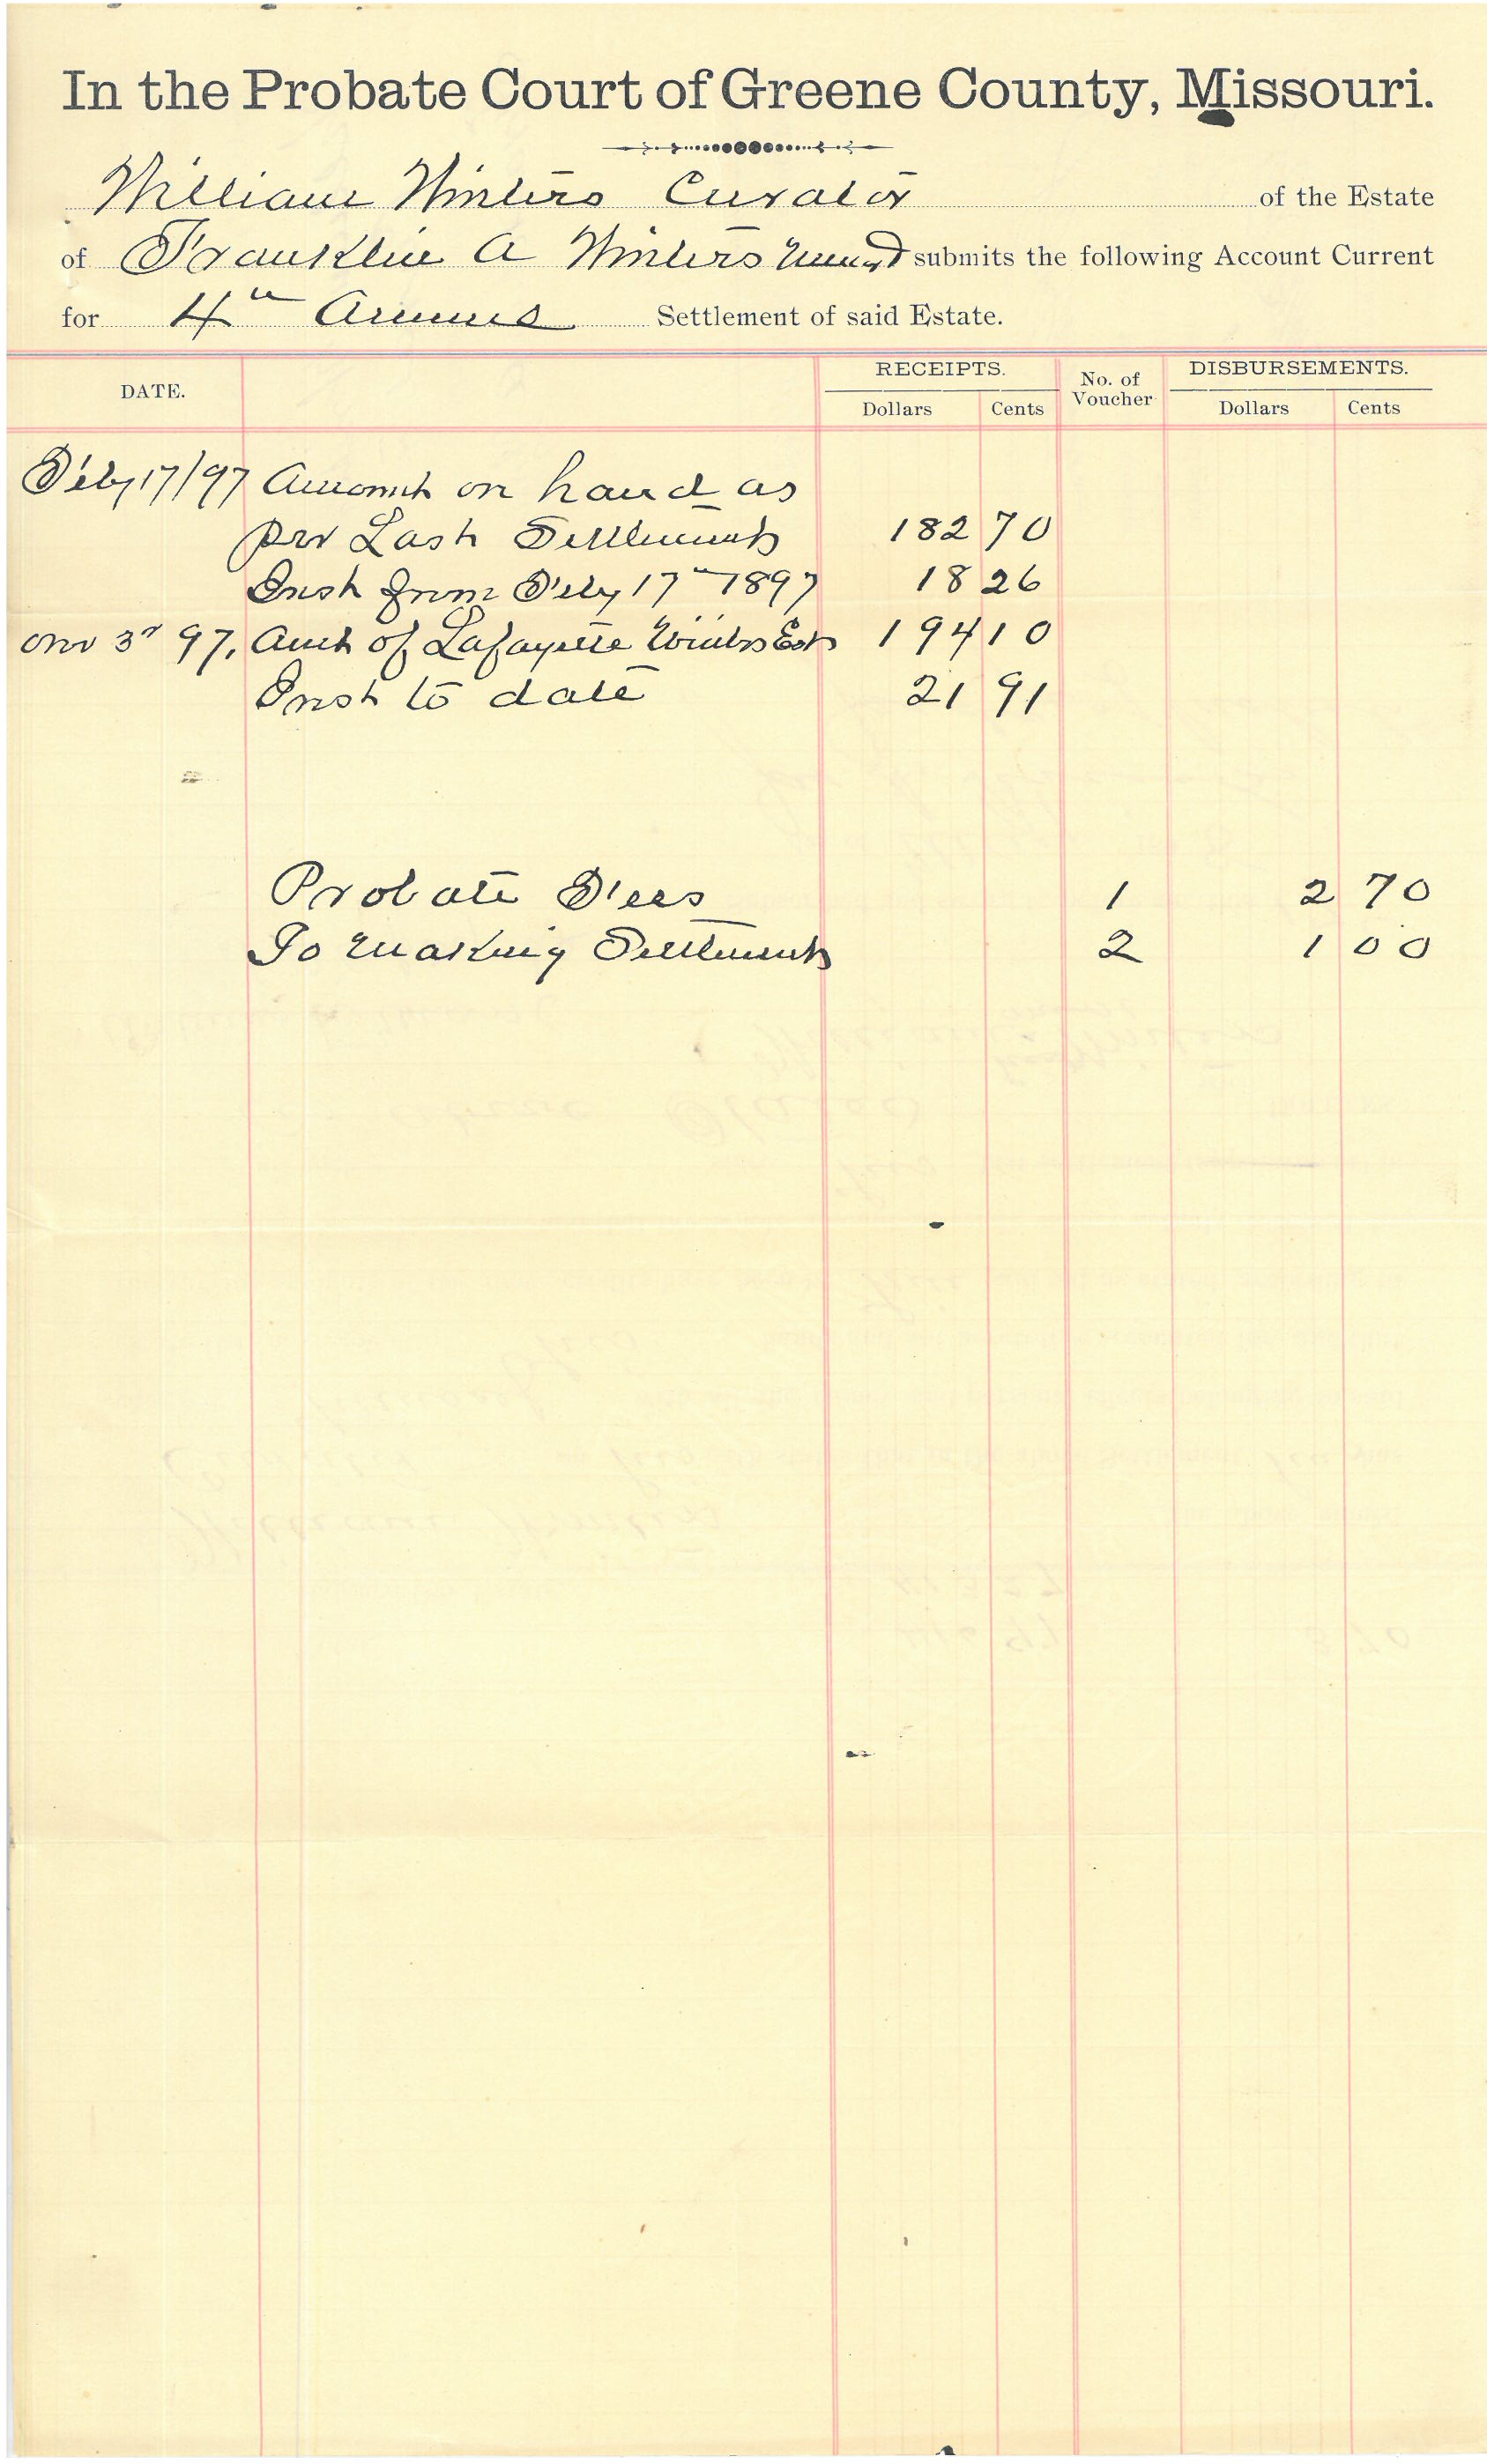 In the Probate Court of Greene County, Missouri.
William Winters Curator of the Estate
of Franklin A Winters submits the following Account Current
for 4th Annual Settlement of said Estate.
DATE. RECEIPTS. No. of Voucher DISBURSEMENTS.
Dollars Cents Dollars Cents
Feby 17/97 Amount on hand as
per Last Settlement 182 70
Inst from Feby 17th 1897 18 26
3d 97, Amt of Lafayette Winters Est 194 10
Inst to date 21 91
Probate Fees 1 2 70
To Making Settlement 2 1 00